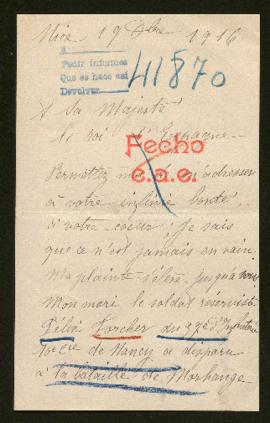 Nice, 19 1916
Pedir informes
Que se hace así
Devolver
41870
A Sa Majesté
le Roi d'Espagne
Fecho
e.a.e.
Permettez m'adresser
à votre infinie bonté
à votre coeur; Je sais
que ce n'est jamais en vain
ma plainte s'élève jusqu'à vous
Mon mari le soldat réserviste
du d'Infanterie
de Nancy a disparu
à la bataille de Morhange